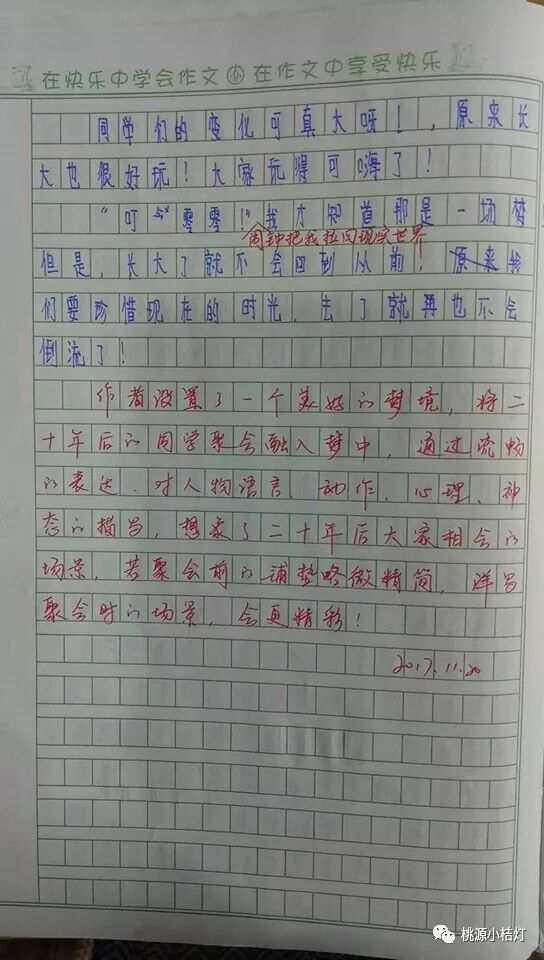 在快乐中学会作文 小 在作文中享受快乐
同学们的变化可真大呀!,原来长
大也很好玩!大家玩得可嗨了!
“叮令零零!”我才知道那是一场梦
闹钟把我拉回现实世界
但是,长大了就不会回到从前!原来我
们要珍惜现在的时光,去了就再也不会
倒流了!
作者设置了一个美好的梦境,将二
十年后的同学聚会融入梦中,通过流畅
的表达.对人物语言、动作、心理、神
态的描写,想象了二十年后大家相会的
场景,若聚会前的铺垫略微精简,详写
聚会时的场景,会更精彩!
2017.11.20
桃源小桔灯